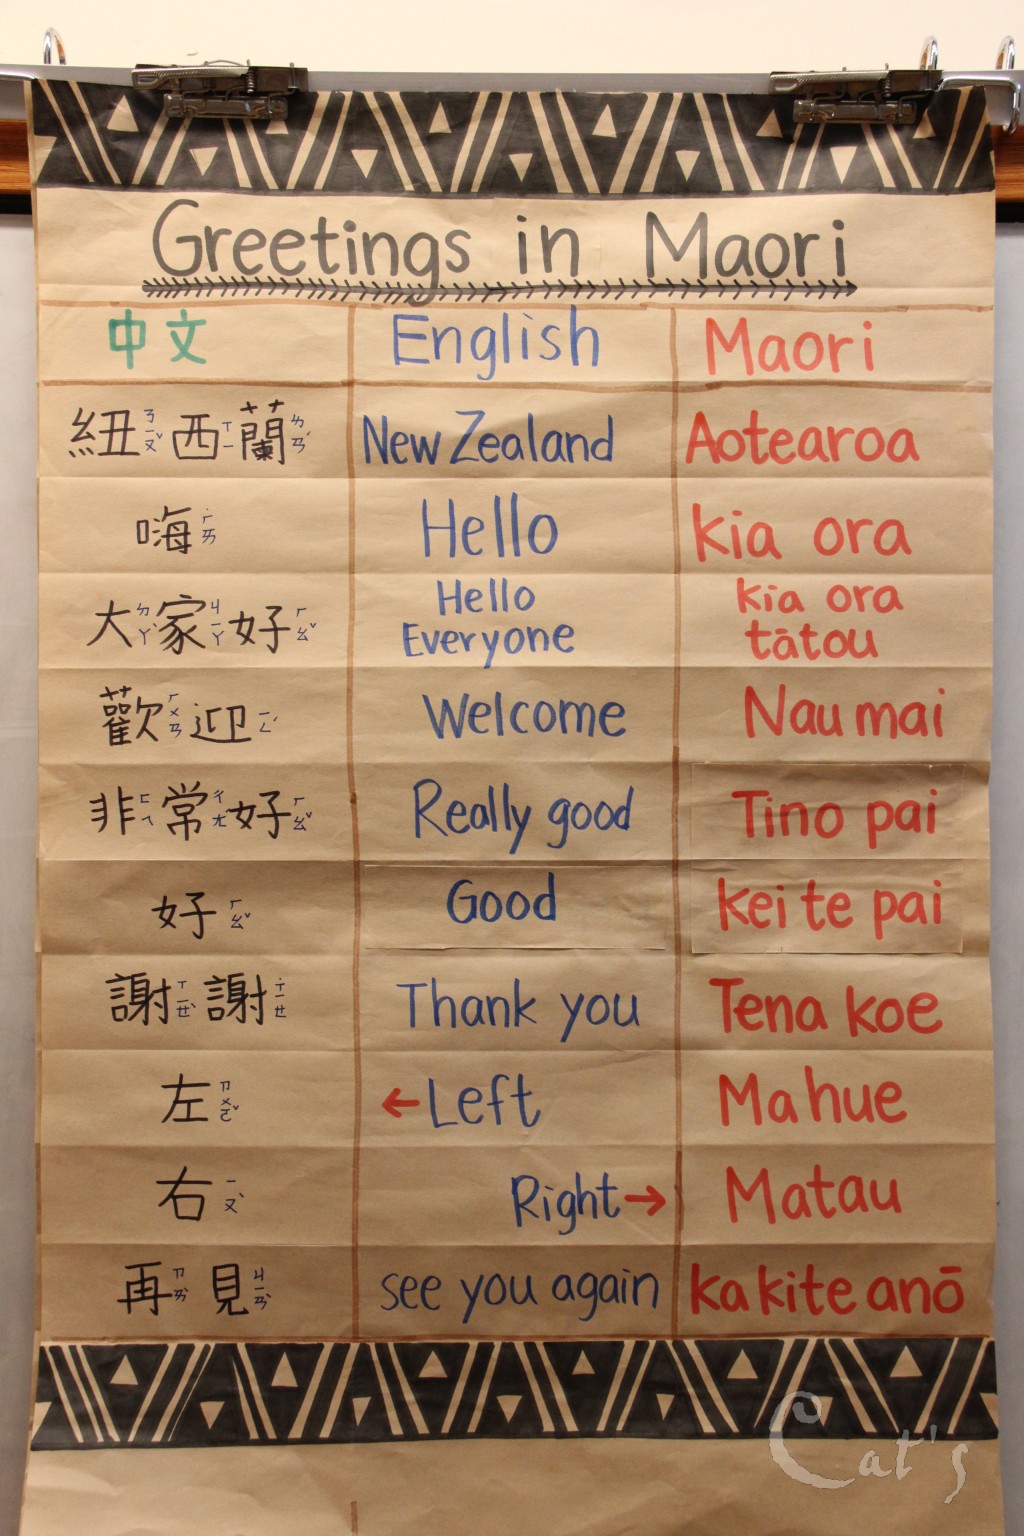 Greetings in Maori
中文 English Maori
紐ㄋㄧㄡˇ西ㄒㄧ蘭ㄌㄢˊ New Zealand Aotearoa
嗨ㄏㄞ Hello kia ora
大ㄉㄚˋ家ㄐㄧㄚ好ㄏㄠˇ Hello Everyone kia ora tātou
歡ㄏㄨㄢ迎ㄧㄥˊ Welcome Nau mai
非ㄈㄟ常ㄔㄤˊ好ㄏㄠˇ Really good Tino pai
好ㄏㄠˇ Good kei te pai
謝ㄒㄧㄝˋ謝˙ㄒㄧㄝ Thank you Tena koe
左ㄗㄨㄛˇ ←Left Mahue
右ㄧㄡˋ Right→ Matau
再ㄗㄞˋ見ㄐㄧㄢˋ see you again ka kite anō
Cat's